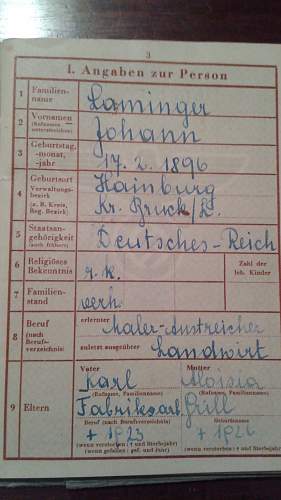 3
I. Angaben zur Person
1 Familien-name Laminger
2 Vornamen (Rufnamen unterstreichen) Johann
3 Geburtstag, -monat, -jahr 17. 2. 1896
4 Geburtsort Verwaltungs-bezirk (z. B. Kreis, Reg. Bezirk) Hainburg
Kr. Bruck/L.
5 Staatsan-gehörigkeit (auch frühere) Deutsches-Reich
6 Religiöses Bekenntnis r. k. Zahl der leb. Kinder
7 Familien-stand verh.
8 Beruf (nach Berufs-verzeichnis) erlernter Maler-Anstreicher
zuletzt ausgeübter Landwirt
9 Eltern
Vater Mutter
Karl Aloisia
(Rufname, Familienname) (Rufname, Familienname)
Fabriksarb. Grill
Beruf (nach Berufsverzeichnis) Geburtsname
+ 1923 + 1926
(wenn verstorben: † und Sterbejahr) (wenn verstorben: † und Sterbejahr)
(wenn gefallen: gef. und Jahr)